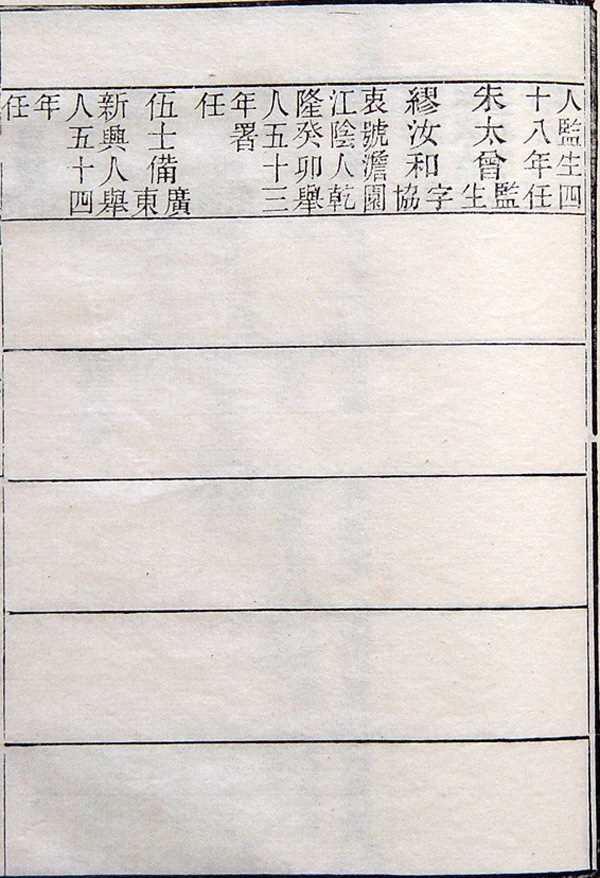 人監生四
十八年任
朱太曾監生
繆汝和字協
衷號澹園
江陰人乾
隆癸卯舉
人五十三
年署
任
伍士備廣東
新興人舉
人五十四
年
任